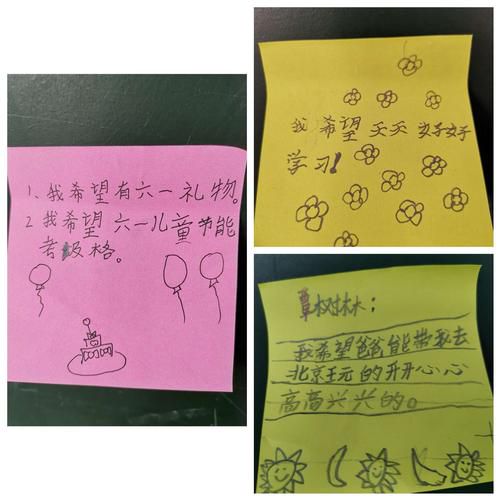 1、我希望有六一礼物。
2 我希望 六一儿童节能
考级格。
我 希望 天天 好好
学习!
覃树林：
我希望爸爸能带我去
北京玩的开开心心
高高兴兴的。